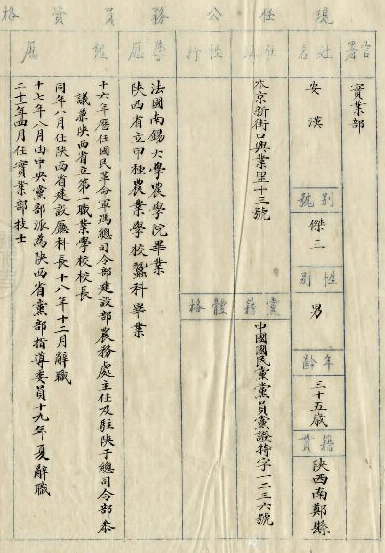 現任公務員資格
官署
實業部
姓名
安漢
別號
傑三
性別
男
年齡
三十五歲
籍貫
陝西南鄭縣
住址
本京新街口興業里十三號
黨籍
中國國民黨黨員黨證特字一二三六號
性行
體格
學歷
法國南錫大學農學院畢業
陝西省立甲種農業學校蠶科畢業
經歷
十六年歷任國民革命軍馮總司令部建設部農務處主任及駐陝于總司令部參
議兼陝西省立第一職業學校校長
同年八月任陝西省建設廳科長十八年十二月辭職
十七年八月由中央黨部派為陝西省黨部指導委員十九年夏辭職
二十年四月任實業部技士